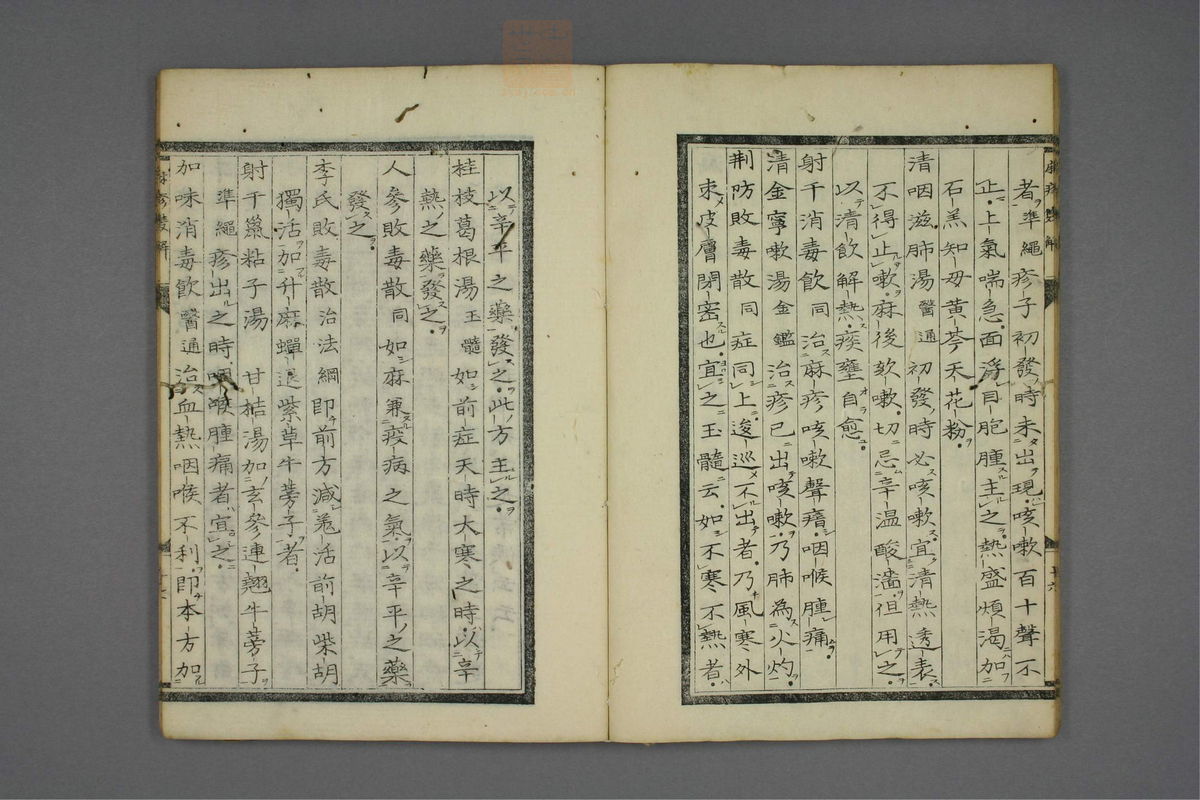 者準繩疹子初發時未出現咳嗽百十聲不
止上氣喘急面浮目胞腫主之熱盛煩渴加
石羔知母黄芩天花粉
清咽滋肺湯醫通初發時必咳嗽宜清熱透表
不得止嗽麻後欬嗽切忌辛温酸濇但用之
以清飲解熱痰壅自愈
射干消毒飲同治麻疹咳嗽聲瘖咽喉腫痛
清金寧嗽湯金鑑治疹已出咳嗽乃肺為火灼
荆防敗毒散同症同上逡巡不出者乃風寒外
束皮膚閉密也宜之玉髓云如不寒不熱者
以辛平之藥發之此方主之
桂枝葛根湯玉髓如前症天時大寒之時以辛
熱之藥發之
人參敗毒散同如麻兼疫病之氣以辛平之藥
發之
李氏敗毒散治法綱即前方減羗活前胡柴胡
獨活加升麻蟬退紫草牛蒡子者
射干鼠粘子湯甘桔湯加玄參連翹牛蒡子
準繩疹出之時咽喉腫痛者宜之
加味消毒飲醫通治血熱咽喉不利即本方加